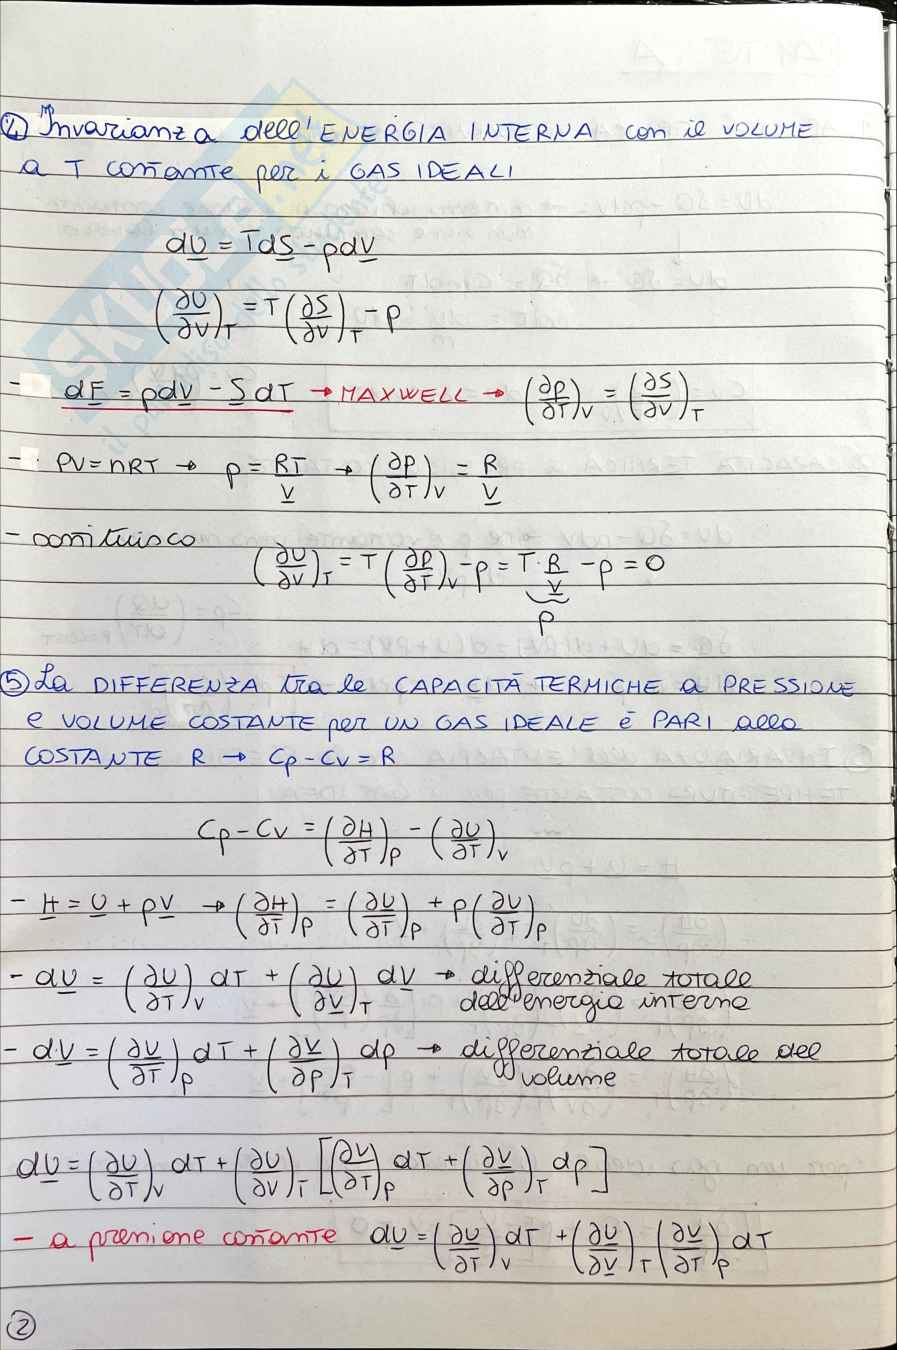 ④ Invarianza dell'ENERGIA INTERNA con il VOLUME
a T costante per i GAS IDEALI
dU = TdS - pdV
(∂U/∂V)_T = T (∂S/∂V)_T - p
- dF = pdV - S dT → MAXWELL → (∂p/∂T)_V = (∂S/∂V)_T
- PV = nRT → p = RT/V → (∂p/∂T)_V = R/V
- sostituisco
(∂U/∂V)_T = T (∂p/∂T)_V - p = T · R/V - p = 0
p
⑤ La DIFFERENZA tra le CAPACITÀ TERMICHE a PRESSIONE
e VOLUME COSTANTE per UN GAS IDEALE è PARI alla
COSTANTE R → Cp - Cv = R
Cp - Cv = (∂H/∂T)_p - (∂U/∂T)_V
- H = U + pV → (∂H/∂T)_p = (∂U/∂T)_p + p (∂V/∂T)_p
- dU = (∂U/∂T)_V dT + (∂U/∂V)_T dV → differenziale totale
dell'energia interna
- dV = (∂V/∂T)_p dT + (∂V/∂p)_T dp → differenziale totale del
volume
dU = (∂U/∂T)_V dT + (∂U/∂V)_T [(∂V/∂T)_p dT + (∂V/∂p)_T dp]
- a pressione costante dU = (∂U/∂T)_V dT + (∂U/∂V)_T (∂V/∂T)_p dT
②